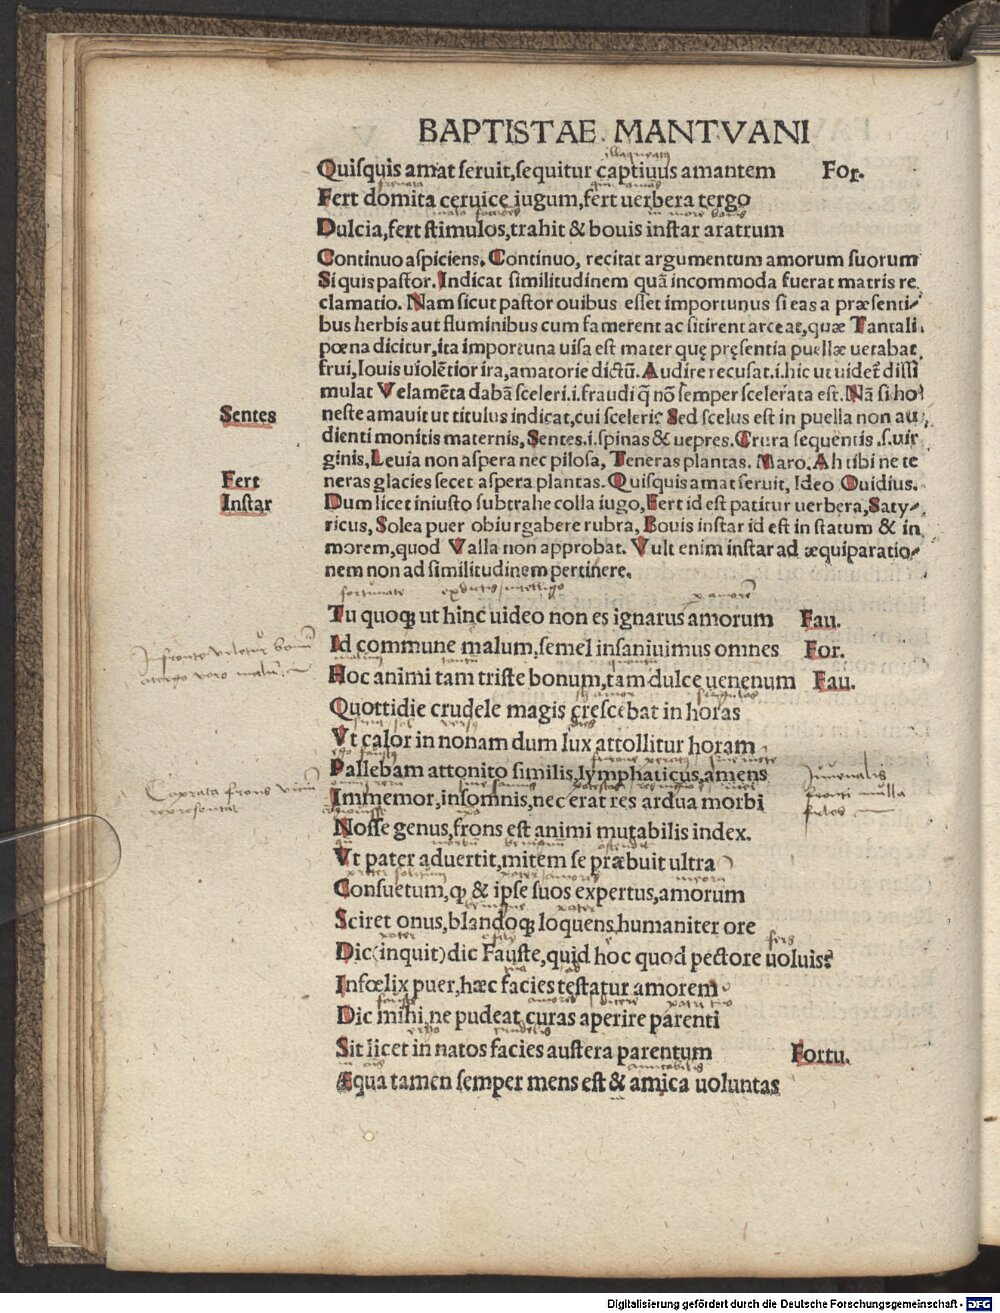 BAPTISTAE MANTVANI
Quisquis amat seruit, sequitur captiuus amantem For.
Fert domita ceruice iugum, fert uerbera tergo
Dulcia, fert stimulos, trahit & bouis instar aratrum
Continuo aspiciens. Continuo, recitat argumentum amorum suorum
Si quis pastor. Indicat similitudinem quã incommoda fuerat matris re
clamatio. Nam sicut pastor ouibus esset importunus si eas a præsenti-
bus herbis aut fluminibus cum famerent ac sitirent arceat, quæ Tantali
pœna dicitur, ita importuna uisa est mater quę pręsentia puellæ uetabat
frui, Iouis uiolẽtior ira, amatorie dictũ. Audire recusat .i. hic ut uidet̃ dissi
mulat Velamẽta dabã sceleri .i. fraudi q̃ nõ semper scelerata est. Nã si ho
Sentes
neste amauit ut titulus indicat, cui sceleri: Sed scelus est in puella non au
dienti monitis maternis, Sentes .i. spinas & uepres. Crura sequentis .s. uir
ginis, Leuia non aspera nec pilosa, Teneras plantas. Maro. Ah tibi ne te
Fert
neras glacies secet aspera plantas. Quisquis amat seruit, Ideo Ouidius.
Instar
Dum licet iniusto subtrahe colla iugo, Fert id est patitur uerbera, Saty-
ricus, Solea puer obiurgabere rubra, Bouis instar id est in statum & in
morem, quod Valla non approbat. Vult enim instar ad æquiparatio-
nem non ad similitudinem pertinere.
Tu quoqꝫ ut hinc uideo non es ignarus amorum Fau.
Id commune malum, semel insaniuimus omnes For.
Hoc animi tam triste bonum, tam dulce uenenum Fau.
Quottidie crudele magis crescebat in horas
Vt calor in nonam dum lux attollitur horam
Pallebam attonito similis, lymphaticus, amens
Juuenalis
fronti nulla
fides
Immemor, insomnis, nec erat res ardua morbi
Nosse genus, frons est animi mutabilis index.
Vt pater aduertit, mitem se præbuit ultra
Consuetum, ꝙ & ipse suos expertus, amorum
Sciret onus, blandoqꝫ loquens humaniter ore
Dic (inquit) dic Fauste, quid hoc quod pectore uoluis?
Infœlix puer, hæc facies testatur amorem
Dic mihi, ne pudeat curas aperire parenti
Sit licet in natos facies austera parentum Fortu.
Æqua tamen semper mens est & amica uoluntas
Digitalisierung gefördert durch die Deutsche Forschungsgemeinschaft - DFG